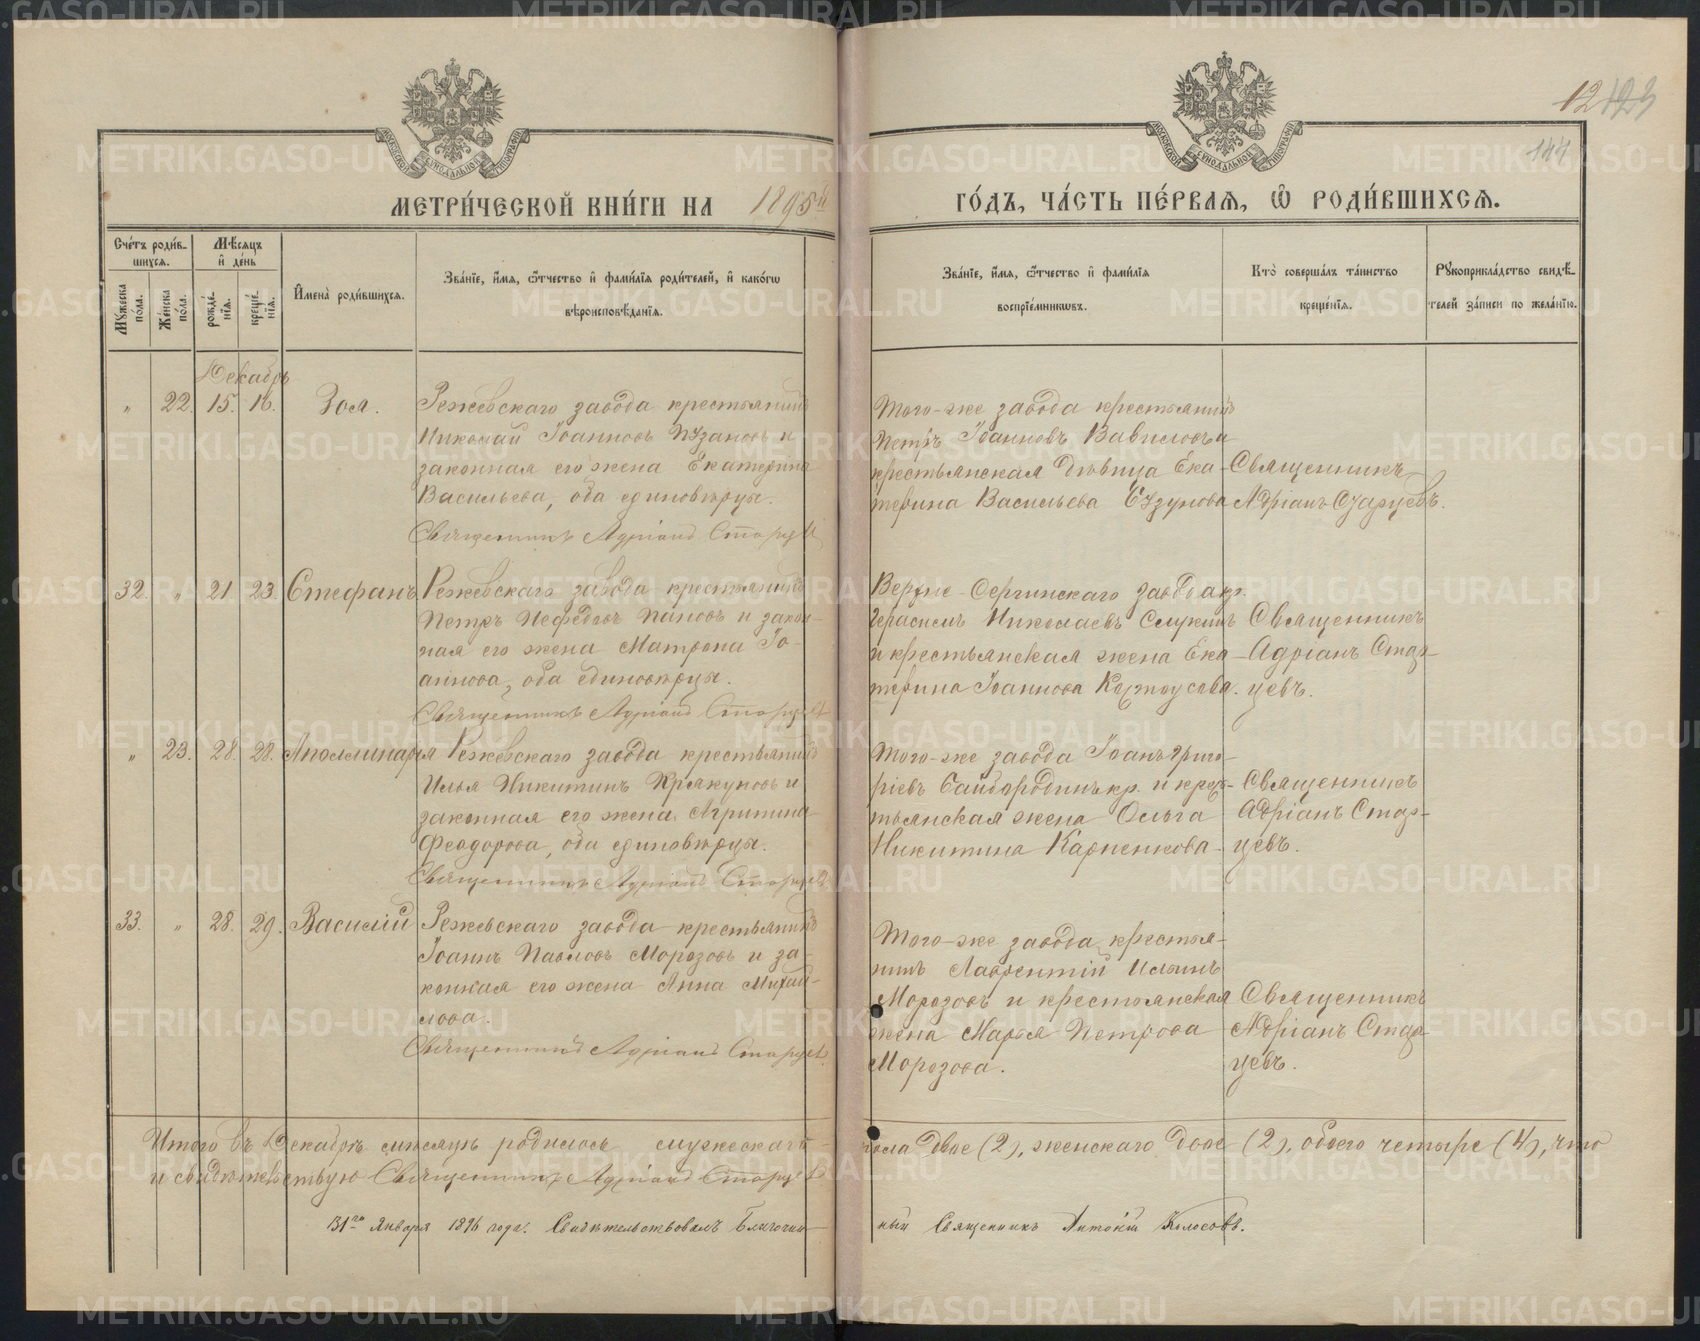 12 123
144
МЕТРИ́ЧЕСКОЙ КНИ́ГИ НА 1895й ГО́ДЪ, ЧА́СТЬ ПЕ́РВАЯ, Ѽ РОДИ́ВШИХСЯ.
Сче́тъ роди́в-
шихся.
Мѣ́сяцъ
и҆ де́нь
Мꙋ́жеска по́ла.
Же́нска по́ла.
рожде́нїя.
креще́нїя.
И҆мена̀ роди́вшихся.
Зва́нїе, и҆́мя, ѻ҆́тчество и҆ фами́лїя роди́телей, и҆ како́гѡ
вѣроисповѣ́данїя.
Зва́нїе, и҆́мя, ѻ҆́тчество и҆ фами́лїя
воспрїе́мникѡвъ.
Кто̀ соверша́лъ та́инство
креще́нїя.
Рꙋкоприкла́дство свидѣ́-
телей за́писи по жела́нїю.
Декабрь
" 22. 15. 16. Зоя. Режевскаго завода крестьянинъ
Николай Іоанновъ Пузановъ и
законная его жена Екатерина
Васильева, оба единовѣрцы.
Священникъ Адріанъ Старцевъ
Того-же завода крестьянинъ
Петръ Іоанновъ Вавиловъ и
крестьянская дѣвица Ека-
терина Васильева
Священникъ
Адріанъ Старцевъ.
32. " 21 23. Стефанъ Режевскаго завода крестьянинъ
Петръ Нефедовъ Пановъ и закон-
ная его жена Матрона Іо-
аннова, оба единовѣрцы.
Священникъ Адріанъ Старцевъ
Верхне-Сергинскаго завода кр.
Герасимъ Николаевъ
и крестьянская жена Ека-
терина Іоаннова
Священникъ
Адріанъ Стар-
цевъ.
" 23. 28. 28. Аполлинарія Режевскаго завода крестьянинъ
Илья Никитинъ Крякуновъ и
законная его жена Агрипина
Феодорова, оба единовѣрцы.
Священникъ Адріанъ Старцевъ
Того-же завода Іоанъ Григо-
ріевъ Байбородинъ кр. и крес-
тьянская жена Ольга
Никитина Карпенкова.
Священникъ
Адріанъ Стар-
цевъ.
33. " 28. 29. Василій Режевскаго завода крестьянинъ
Іоаннъ Павловъ Морозовъ и за-
конная его жена Анна Михай-
лова.
Священникъ Адріанъ Старцевъ
Того-же завода крестья-
нинъ Лаврентій Ильинъ
Морозовъ и крестьянская
жена Марья Петрова
Морозова.
Священникъ
Адріанъ Стар-
цевъ.
Итого въ Декабрѣ мѣсяцѣ родилось мужескаго пола двое (2), женскаго двое (2), обоего четыре (4), что
и свидѣтельствую Священникъ Адріанъ Старцевъ
31го Января 1896 года. Свидѣтельствовалъ Благочин-
ный Священникъ Антоній Колосовъ.
METRIKI.GASO-URAL.RU